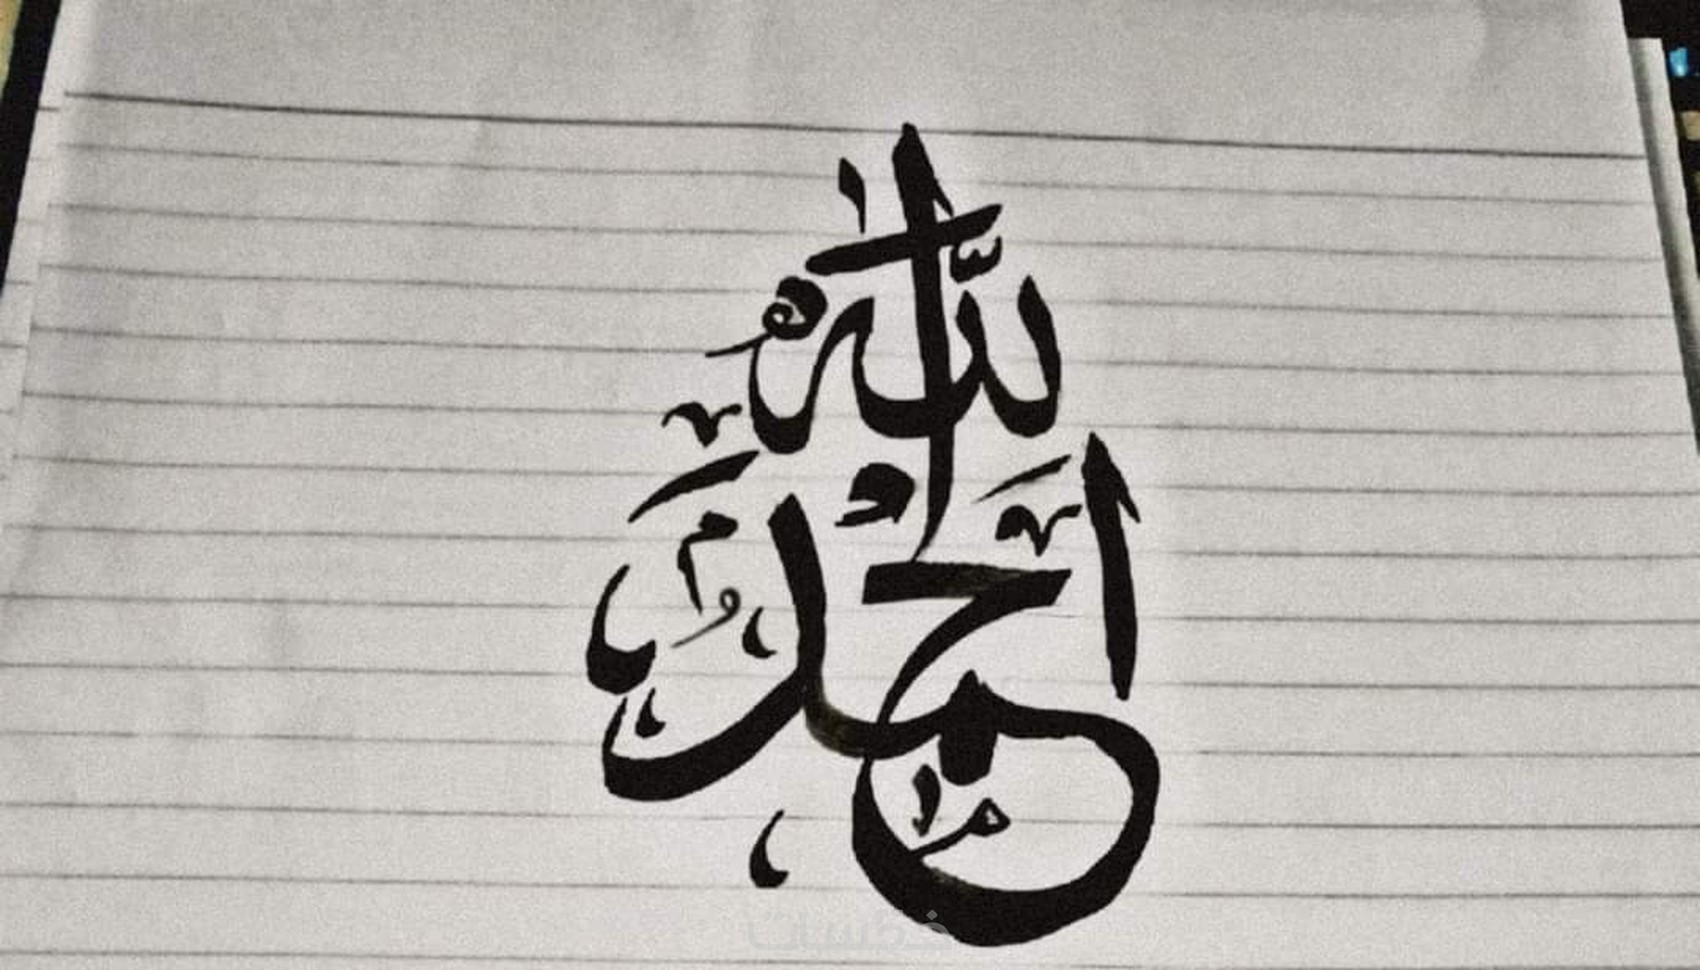 الحمد لله
خمسات